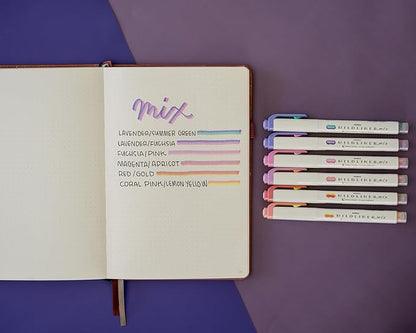 mix
LAVENDER/SUMMER GREEN
LAVENDER/FUCHSIA
FUCHSIA/PINK
MAGENTA/APRICOT
RED/GOLD
CORAL PINK/LEMON YELLOW
MILDLINER
MILDLINER
MILDLINER
MILDLINER
MILDLINER
MILDLINER